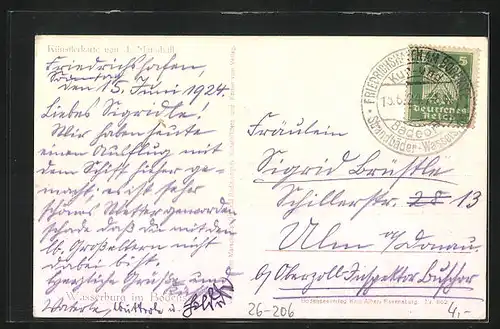 Künstlerkarte von J. Marschall
Friedrichshafen,
Sonntag
den 15. Juni 1924.
Liebes Sigridle!
Wir haben heute
einen Ausflug mit
dem Schiff hieher ge-
macht, es ist sehr
schönes Wetter geworden
schade daß du mit den
lb. Großeltern nicht
dabei bist.
Herzliche Grüße und
Wasserburg im Bodensee
FRIEDRICHSHAFEN AM BODENSEE
Kur- und
Badeort
Strandbäder-Wassersport
5
Deutsches
Reich
Fräulein
Sigrid Brüstle
Schillerstr. 28 13
Ulm a/Donau
b/ Oberzoll-Inspektor
26-206
4,-